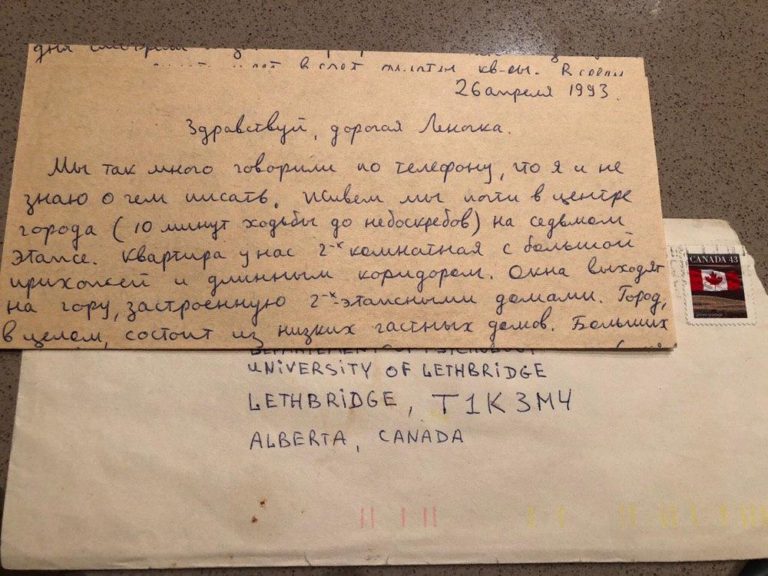 26 апреля 1993.
Здравствуй, дорогая Леночка.
Мы так много говорили по телефону, что я и не
знаю о чем писать. Живем мы почти в центре
города (10 минут ходьбы до небоскребов) на седьмом
этаже. Квартира у нас 2-х комнатная с большой
прихожей и длинным коридором. Окна выходят
на гору, застроенную 2-х этажными домами. Город,
в целом, состоит из низких частных домов. Больших
CANADA 43
UNIVERSITY OF LETHBRIDGE
LETHBRIDGE, T1K 3M4
ALBERTA, CANADA